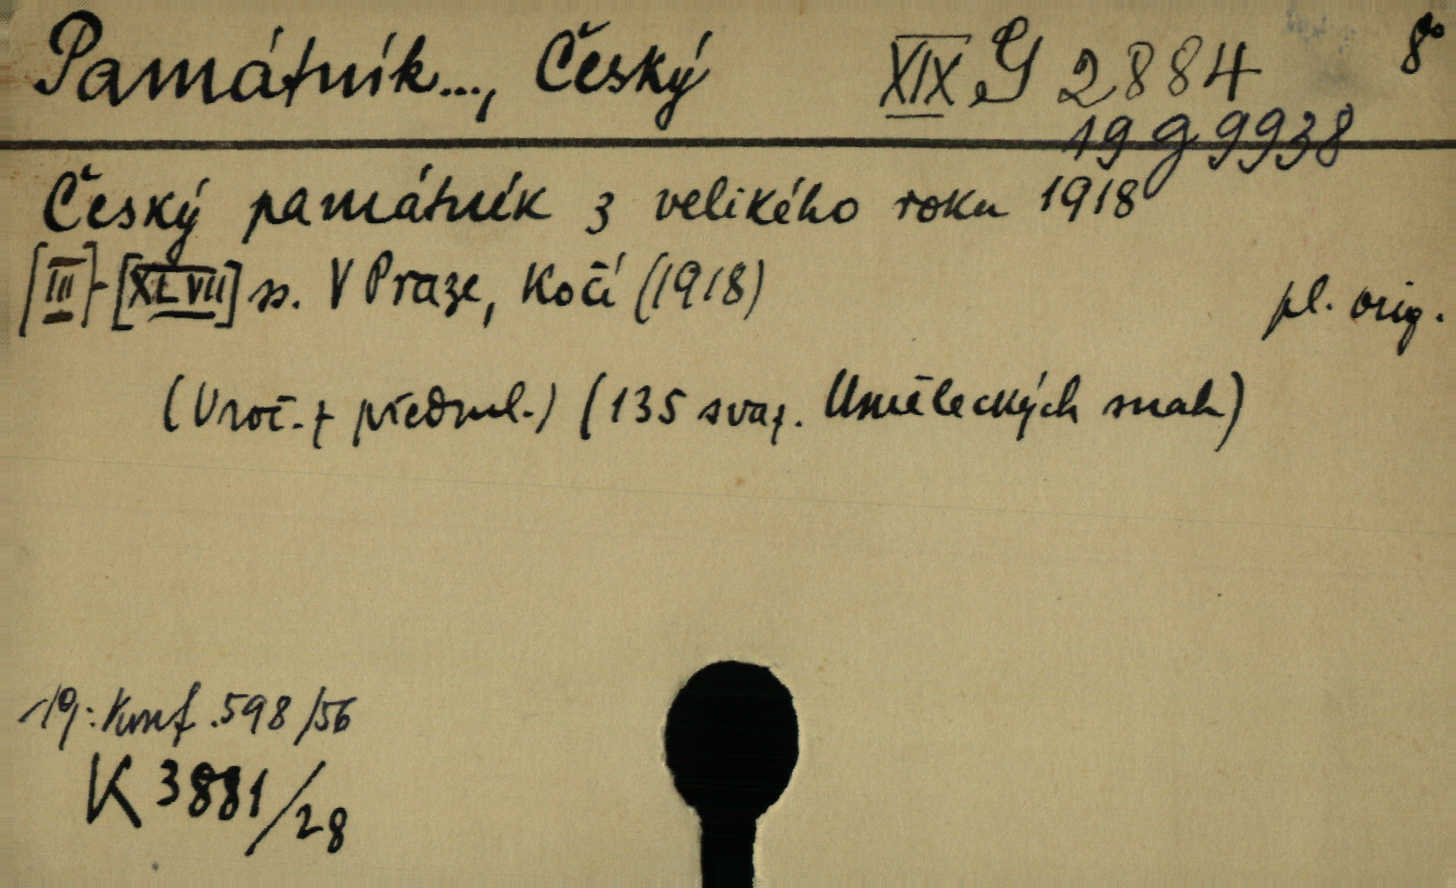 Památník..., Český XIX G 2884 8°
19 g 9938
Český památník z velikého roku 1918
[III]-[XLVII] ss. V Praze, Kočí (1918) pl. orig.
(Vroč. z předml.) (135 svaz. Uměleckých snah)
19: Konf. 598/56
K 3881/28